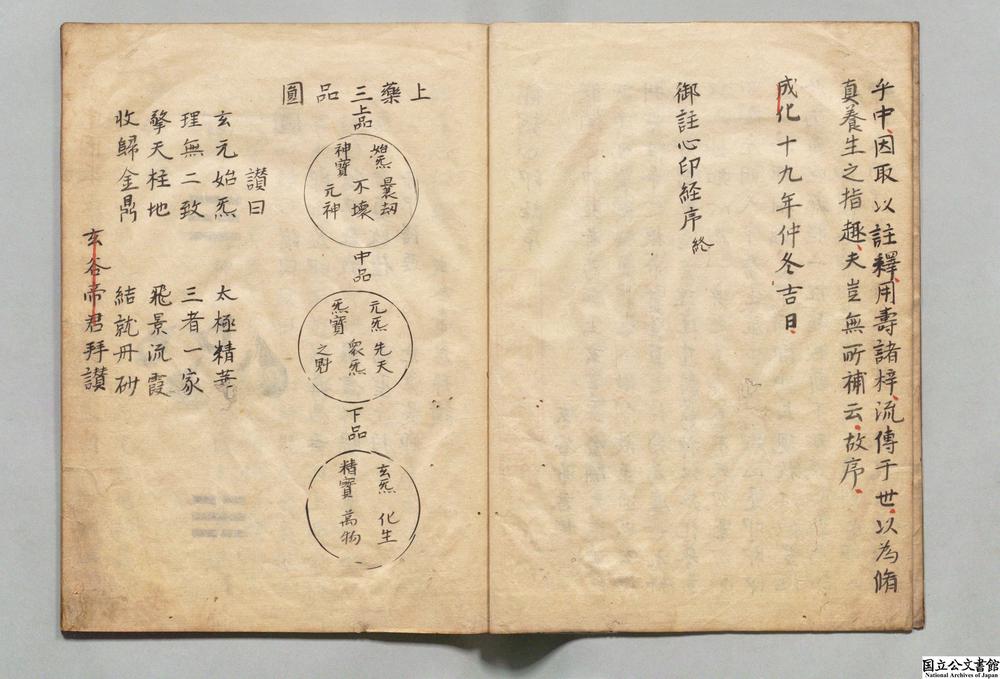 乎中因取以註釋用壽諸梓流傳于世以為脩
真養生之指趣夫豈無所補云故序
成化十九年仲冬吉日
御註心印経序 終
上藥三品圓
上品
始炁 曩劫
不壞
神寶 元神
中品
元炁 先天
衆炁
炁寶 之
下品
玄炁 化生
精寶 萬物
讃曰
玄元始炁 太極精華
理無二致 三者一家
擎天柱地 飛景流霞
收歸金鼎 結就丹砂
玄谷帝君拜讃
国立公文書館
National Archives of Japan